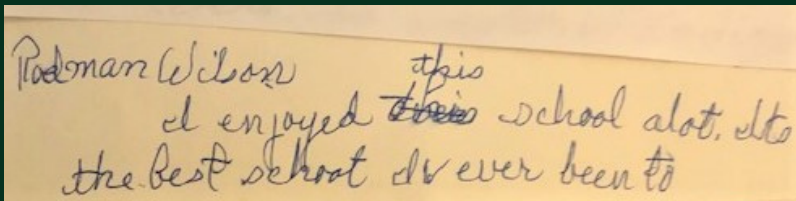 Rodman Wilson
this
I enjoyed school alot. Its
the best school Iv ever been to